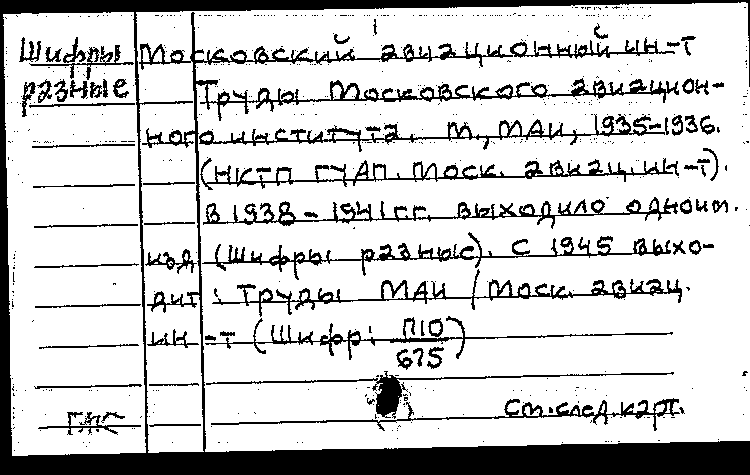 Шифры разные
Московский авиационный ин-т
Труды Московского авиацион-
ного института. М., МАИ, 1935-1936.
(НКТП ГУАП. Моск. авиац. ин-т).
В 1938 - 1941 гг. выходило одноим.
изд (Шифры разные). С 1945 выхо-
дит: Труды МАИ / Моск. авиац.
ин-т (Шифр: П10/675)
См. след. карт.